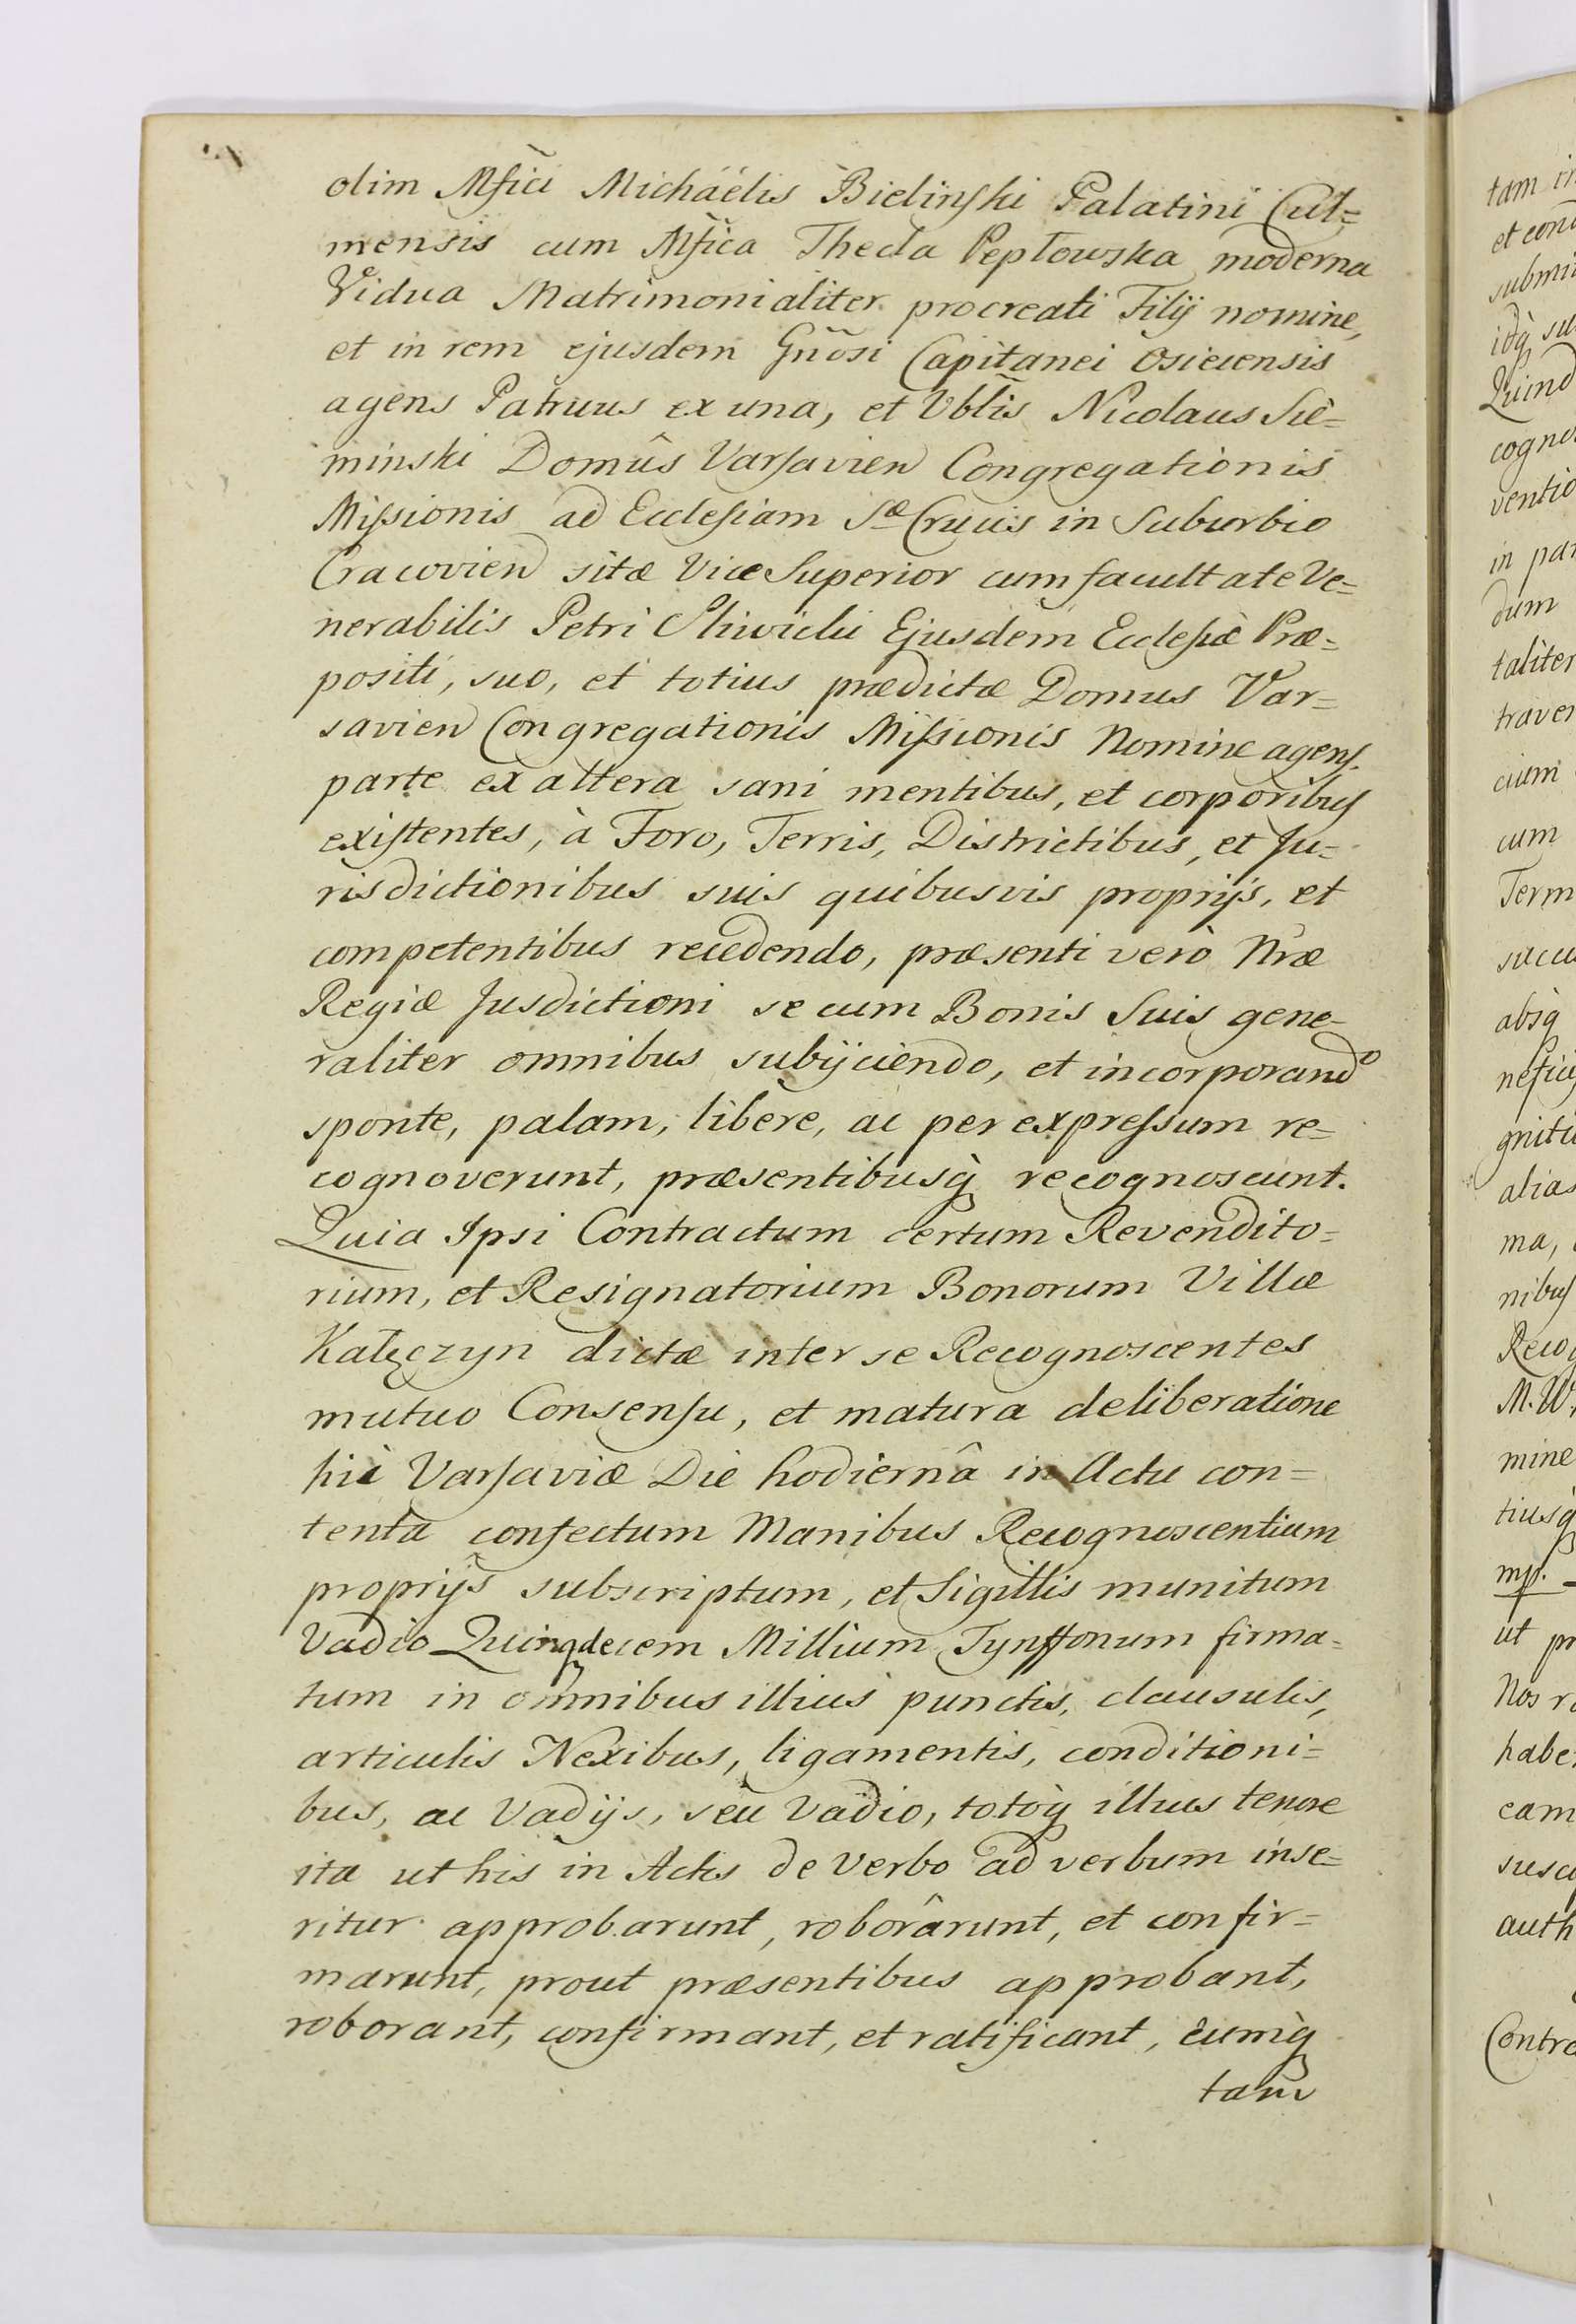 olim Mfici Michaelis Bielinski Palatini Cul=
mensis cum Mfica Thecla Pepłowska moderna
Vidua Matrimonialiter procreati Filij nomine,
et in rem ejusdem Gnosi Capitanei Osiecensis
agens Patruus ex una, et Vblis Nicolaus Sie=
minski Domûs Varsavien Congregationis
Missionis ad Ecclesiam Sæ Crucis in Suburbio
Cracovien sitæ Vice Superior cum facultate Ve=
nerabilis Petri Sliwicki Ejusdem Ecclesiæ Præ=
positi, suo, et totius prædictæ Domus Var=
savien Congregationis Missionis Nomine agens
parte ex altera sani mentibus, et corporibus
existentes, à Foro, Terris, Districtibus, et Ju=
risdictionibus suis quibusvis proprijs, et
competentibus recedendo, præsenti verò Nræ
Regiæ Jusdictioni se cum Bonis Suis gene=
raliter omnibus subijciendo, et incorporando
sponte, palam, libere, ac per expressum re=
cognoverunt, præsentibusq̀ recognoscunt.
Quia Ipsi Contractum certum Revendito=
rium, et Resignatorium Bonorum Villæ
Kałęczyn dictæ inter se Recognoscentes
mutuo Consensu, et matura deliberatione
hic Varsaviæ Die hodiernâ in Actu con=
tenta confectum Manibus Recognoscentium
proprijs subscriptum, et Sigillis munitum
Vadio Quinqdecem Millium Tynffonum firma=
tum in omnibus illius punctis, clausulis,
articulis Nexibus, ligamentis, conditioni=
bus, ac Vadijs, seu Vadio, totoq̀ illius tenore
ita ut his in Actis de verbo ad verbum inse=
ritur approbarunt, roborârunt, et confir=
marunt, prout præsentibus approbant,
roborant, confirmant, et ratificant, eumq̀
tam
tam in
et cond
submi
idq̀ su
Quind
cogno
ventio
in par
dum
taliter
traver
cium
cum
Term
succu
absq̀
nefici
gnitu
alias
ma,
nibus
Recog
M.W.
mine
tiusq̀
mp.
ut pr
Nos r
habe
eam
susce
auth
Contra